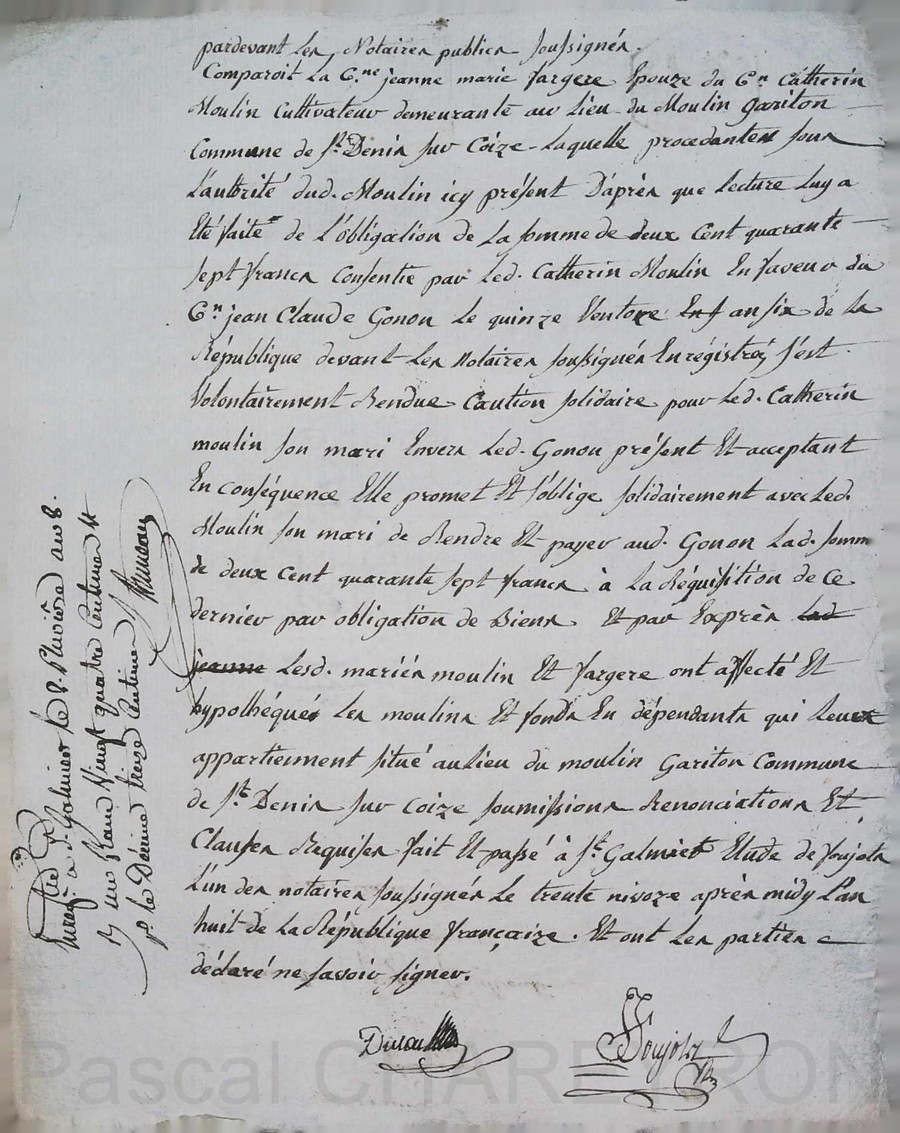 pardevant Les Notaires publics soussignés.
Comparoit La C.ne jeanne marie fargere Epouze du C.n Catherin
Moulin Cultivateur demeurante au Lieu du Moulin gariton
Commune de s.t Denis sur Coize Laquelle procedante sous
L'autorité dud. Moulin icy présent D'après que lecture luy a
Eté faite de L'obligation de La somme de deux Cent quarante
sept francs Consentie par Led. Catherin Moulin En faveur du
C.n jean Claude Gonon Le quinze Ventoze an six de La
République devant Les Notaires soussignés Enrégistré, s'est
Volontairement Rendue Caution solidaire pour Led. Catherin
moulin son mari Envers Led. Gonon présent Et acceptant
En conséquence Elle promet Et s'oblige solidairement avec Led.
Moulin son mari de Rendre Et payer aud. Gonon Lad. somm
de deux Cent quarante sept francs à La Réquisition de Ce
dernier par obligation de Biens Et par Exprès Lad
jeanne Lesd. mariés moulin Et fargere ont affecté Et
hypothéqués Les moulins Et fonds En dépendants qui Leurs
appartienment situé au Lieu du moulin Gariton Commune
de s.t Denis sur Coize soumissions Renonciations Et
Clauses Requises fait Et passé à s.t Galmier Etude de soujols
L'un des notaires soussignés Le trente nivoze après midy L'an
huit de La République françaize. Et ont Les parties
déclaré ne savoir signer.
Soujols
Enreg.é à s.t Galmier le 8. Pluviôse an 8.
R un franc Vingt quatre Centimes
p.r le Décime treize Centimes
Pascal CHARETRON